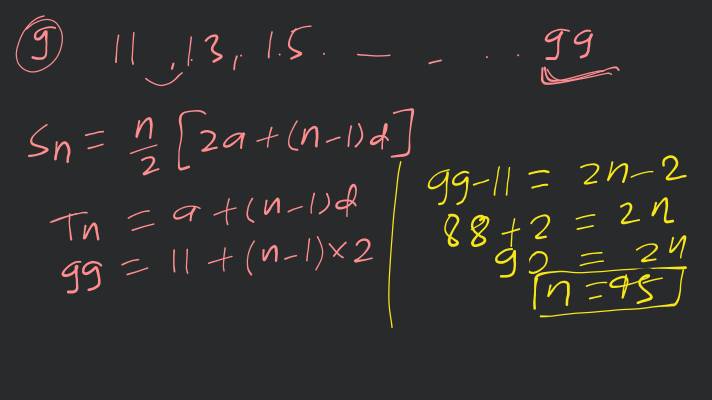 9 11, 13, 15. — - . . . 99
Sn = n/2 [2a + (n-1)d]
Tn = a + (n-1)d
99 = 11 + (n-1)×2
99-11 = 2n-2
88+2 = 2n
90 = 2n
n = 45